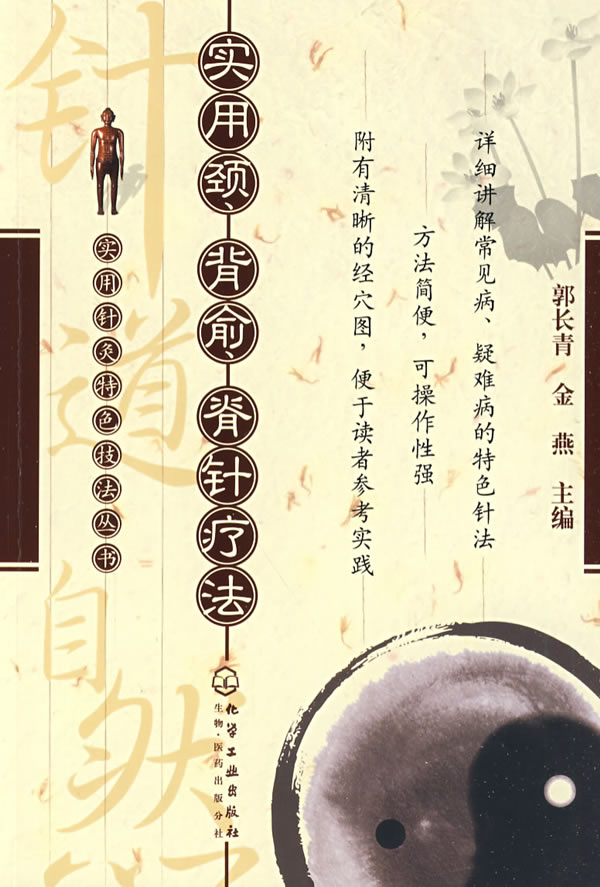 郭长青 金燕 主编
详细讲解常见病、疑难病的特色针法
方法简便，可操作性强
附有清晰的经穴图，便于读者参考实践
实用颈、背俞、脊针疗法
化学工业出版社
生物·医药出版分社
实用针灸特色技法丛书
针道自然